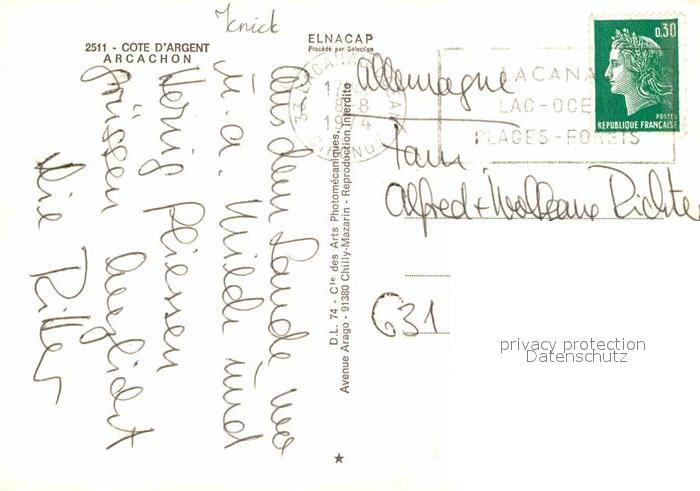 Knick
2511 - COTE D'ARGENT
ARCACHON
ELNACAP
Procédé par Sélection
Aus dem Lande wo
u. a. Milch und
Honig fliessen
grüssen herzlichst
die Ritter
D.L. 74 - Cie des Arts Photomécaniques,
Avenue Arago - 91380 Chilly-Mazarin - Reproduction interdite
33 LACANAU
8-8
1974
LACANAU
LAC-OCEAN
PLAGES-FORETS
0,30
POSTES
REPUBLIQUE FRANÇAISE
Allemagne
Fam.
Alfred + Richter
631
privacy protection
Datenschutz